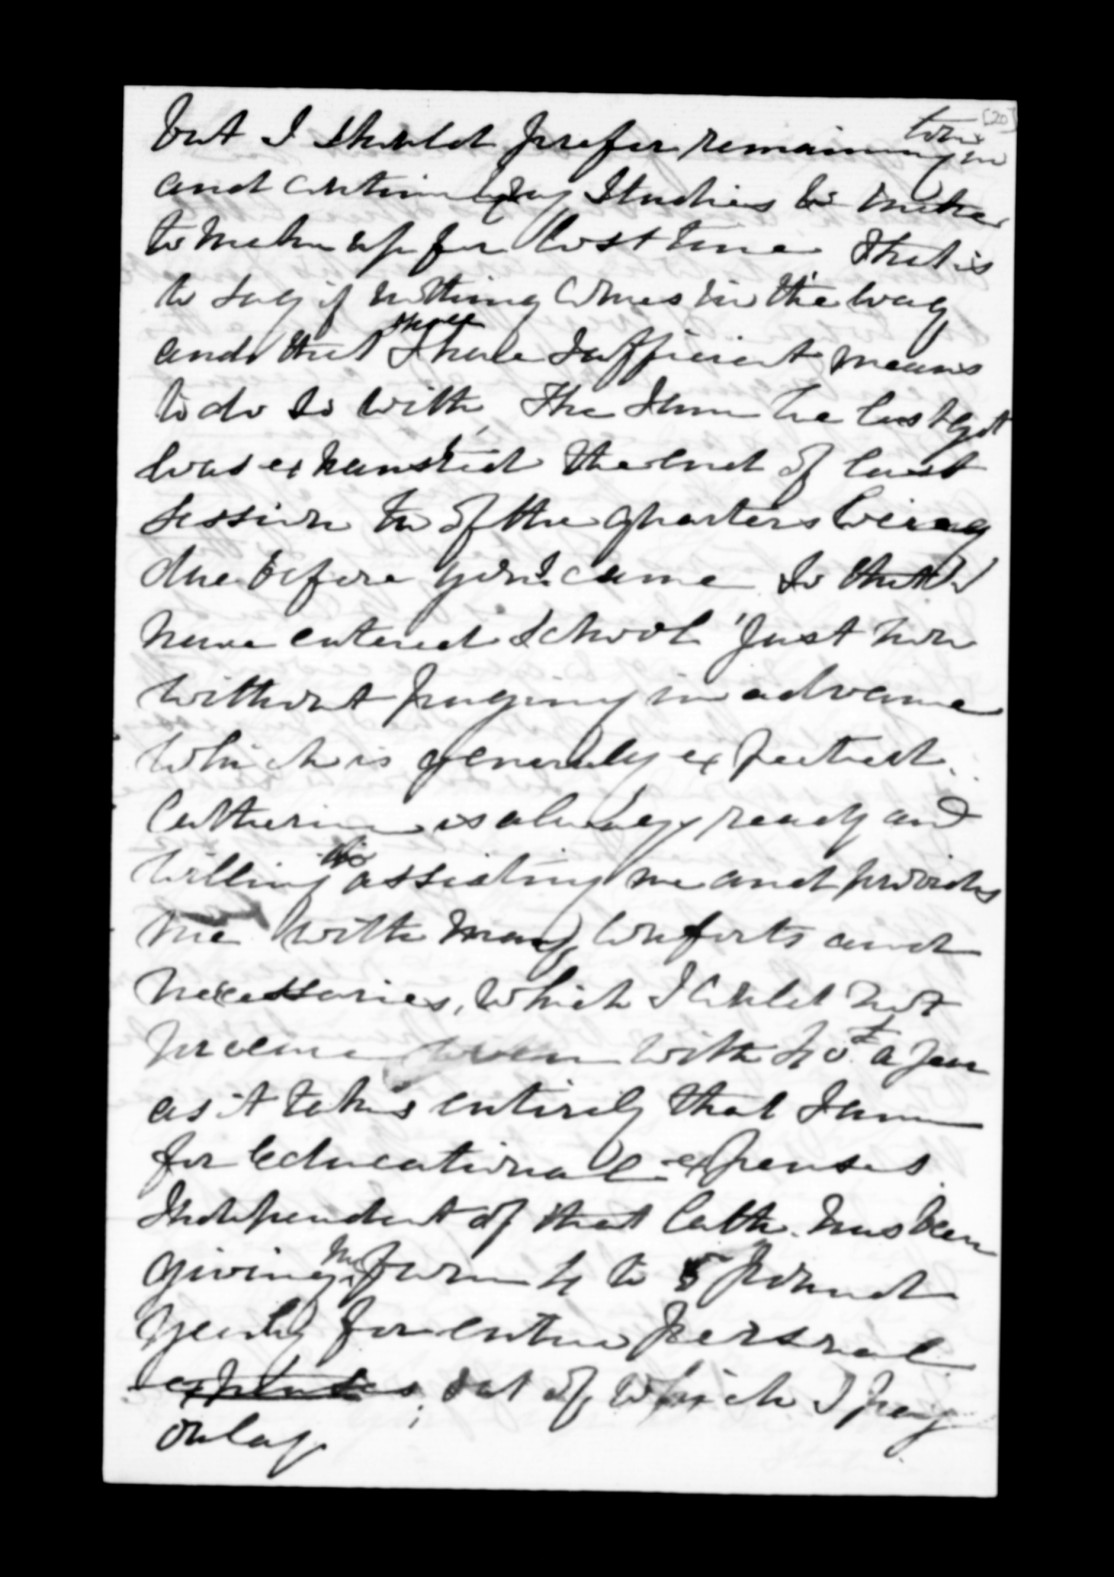 but I should prefer remaining in town [20]
and continuing my Studies in order
to make up for lost time That is
to say if nothing comes in the way
and that I shall have sufficient means
to do so with, The Sum we last got
was exhausted the end of last
session two of the quarters being
due before yours came So that I
have entered School just now
without paying in advance
which is generally expected.
Catherine is always ready and
willing in assisting me and provides
me with many comforts and
necessaries, which I could not
procure even with 40£ a year
as it takes entirely that Sum
for Educational expenses.
Independent of that Cath. has been
giving me from 4 to 5 pound
yearly for entire personal
expenses, out of which I pay
only